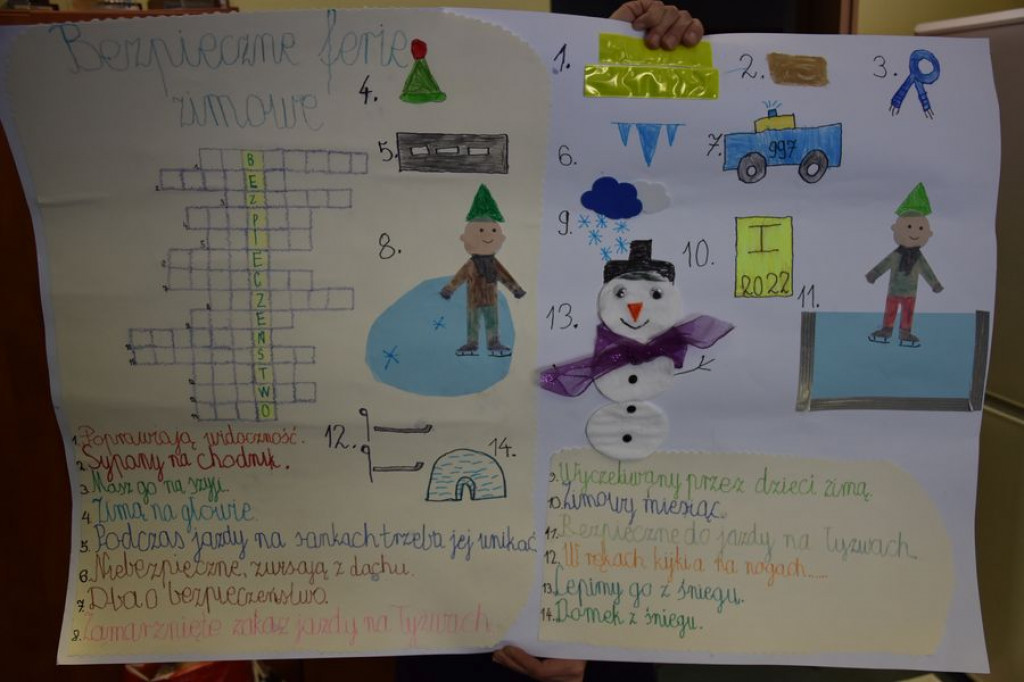 Bezpieczne ferie
zimowe
4.
5.
8.
12.
14.
B
E
Z
P
I
E
C
Z
E
Ń
S
T
W
O
1. Poprawiają widoczność.
2. Sypany na chodnik.
3. Masz go na szyji
4. Zimą na głowie.
5. Podczas jazdy na sankach trzeba jej unikać
6. Niebezpieczne, zwisają z dachu.
7. Dba o bezpieczeństwo.
8. Zamarznięte zakaz jazdy na łyżwach.
1.
2.
3.
6.
7.
997
9.
10.
I
2022
11.
13.
9. Wyczekiwany przez dzieci zimą.
10. Zimowy miesiąc.
11. Bezpieczne do jazdy na łyżwach.
12. W rękach kijki a na nogach....
13. Lepimy go z śniegu.
14. Domek z śniegu.